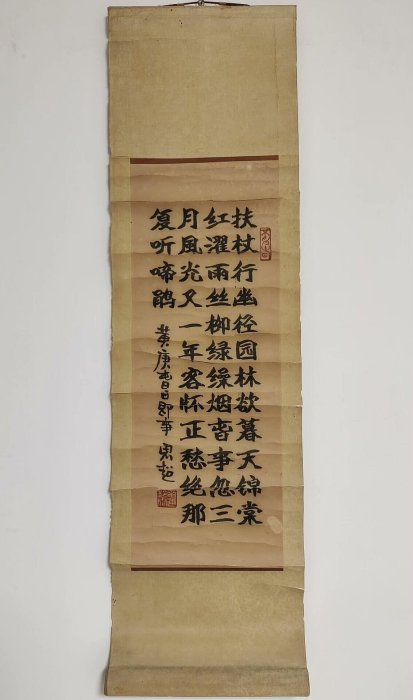 扶杖行幽径园林欲暮天锦棠
红濯雨丝柳绿缲烟春事忽三
月風光又一年客怀正愁绝那
复听啼鹃
黄庚春日即事